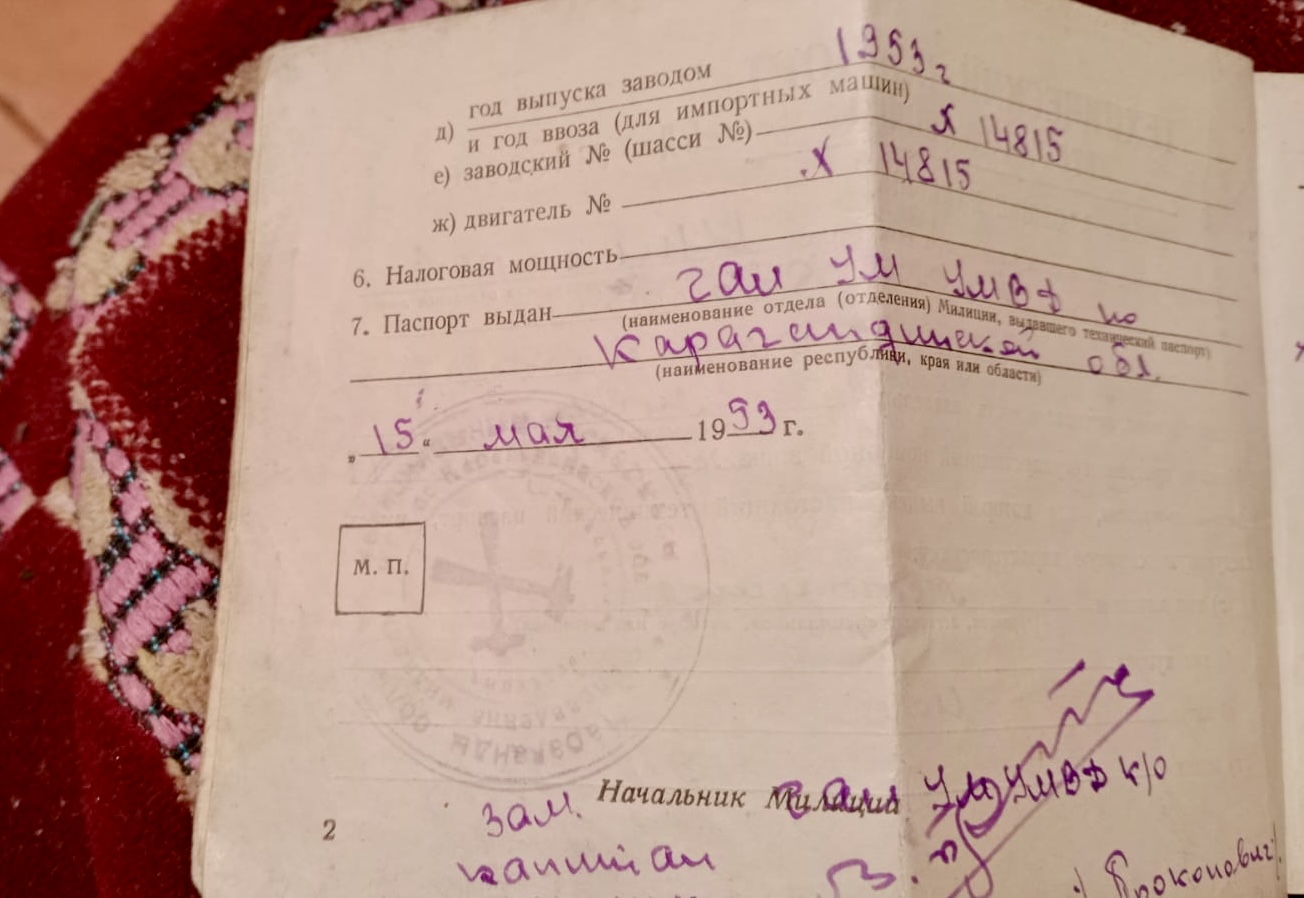 д) год выпуска заводом 1953 г
и год ввоза (для импортных машин)
е) заводский № (шасси №) Х 14815
ж) двигатель № Х 14815
6. Налоговая мощность
7. Паспорт выдан гаи УМ УМВД по
(наименование отдела (отделения) Милиции, выдавшего технический паспорт)
Карагандинской обл.
(наименование республики, края или области)
„ 15 “ мая 1953 г.
М. П.
Зам. Начальник Милиции гаи УМ УМВД К/О
2
капитан Прокопович